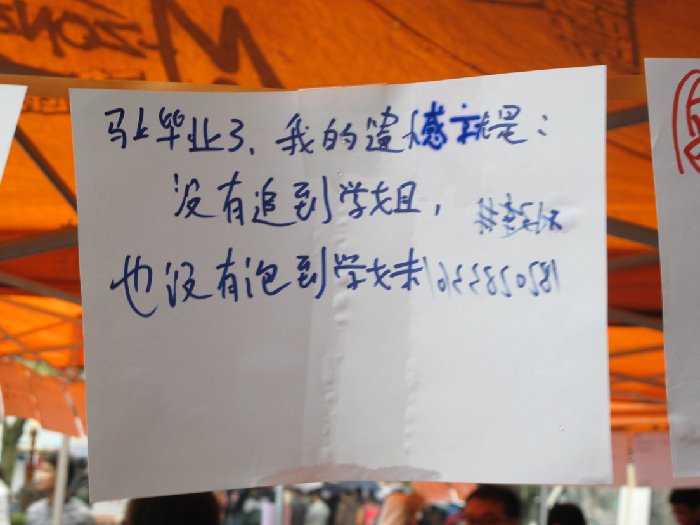 马上毕业了、我的遗憾就是：
没有追到学姐，
也没有泡到学妹